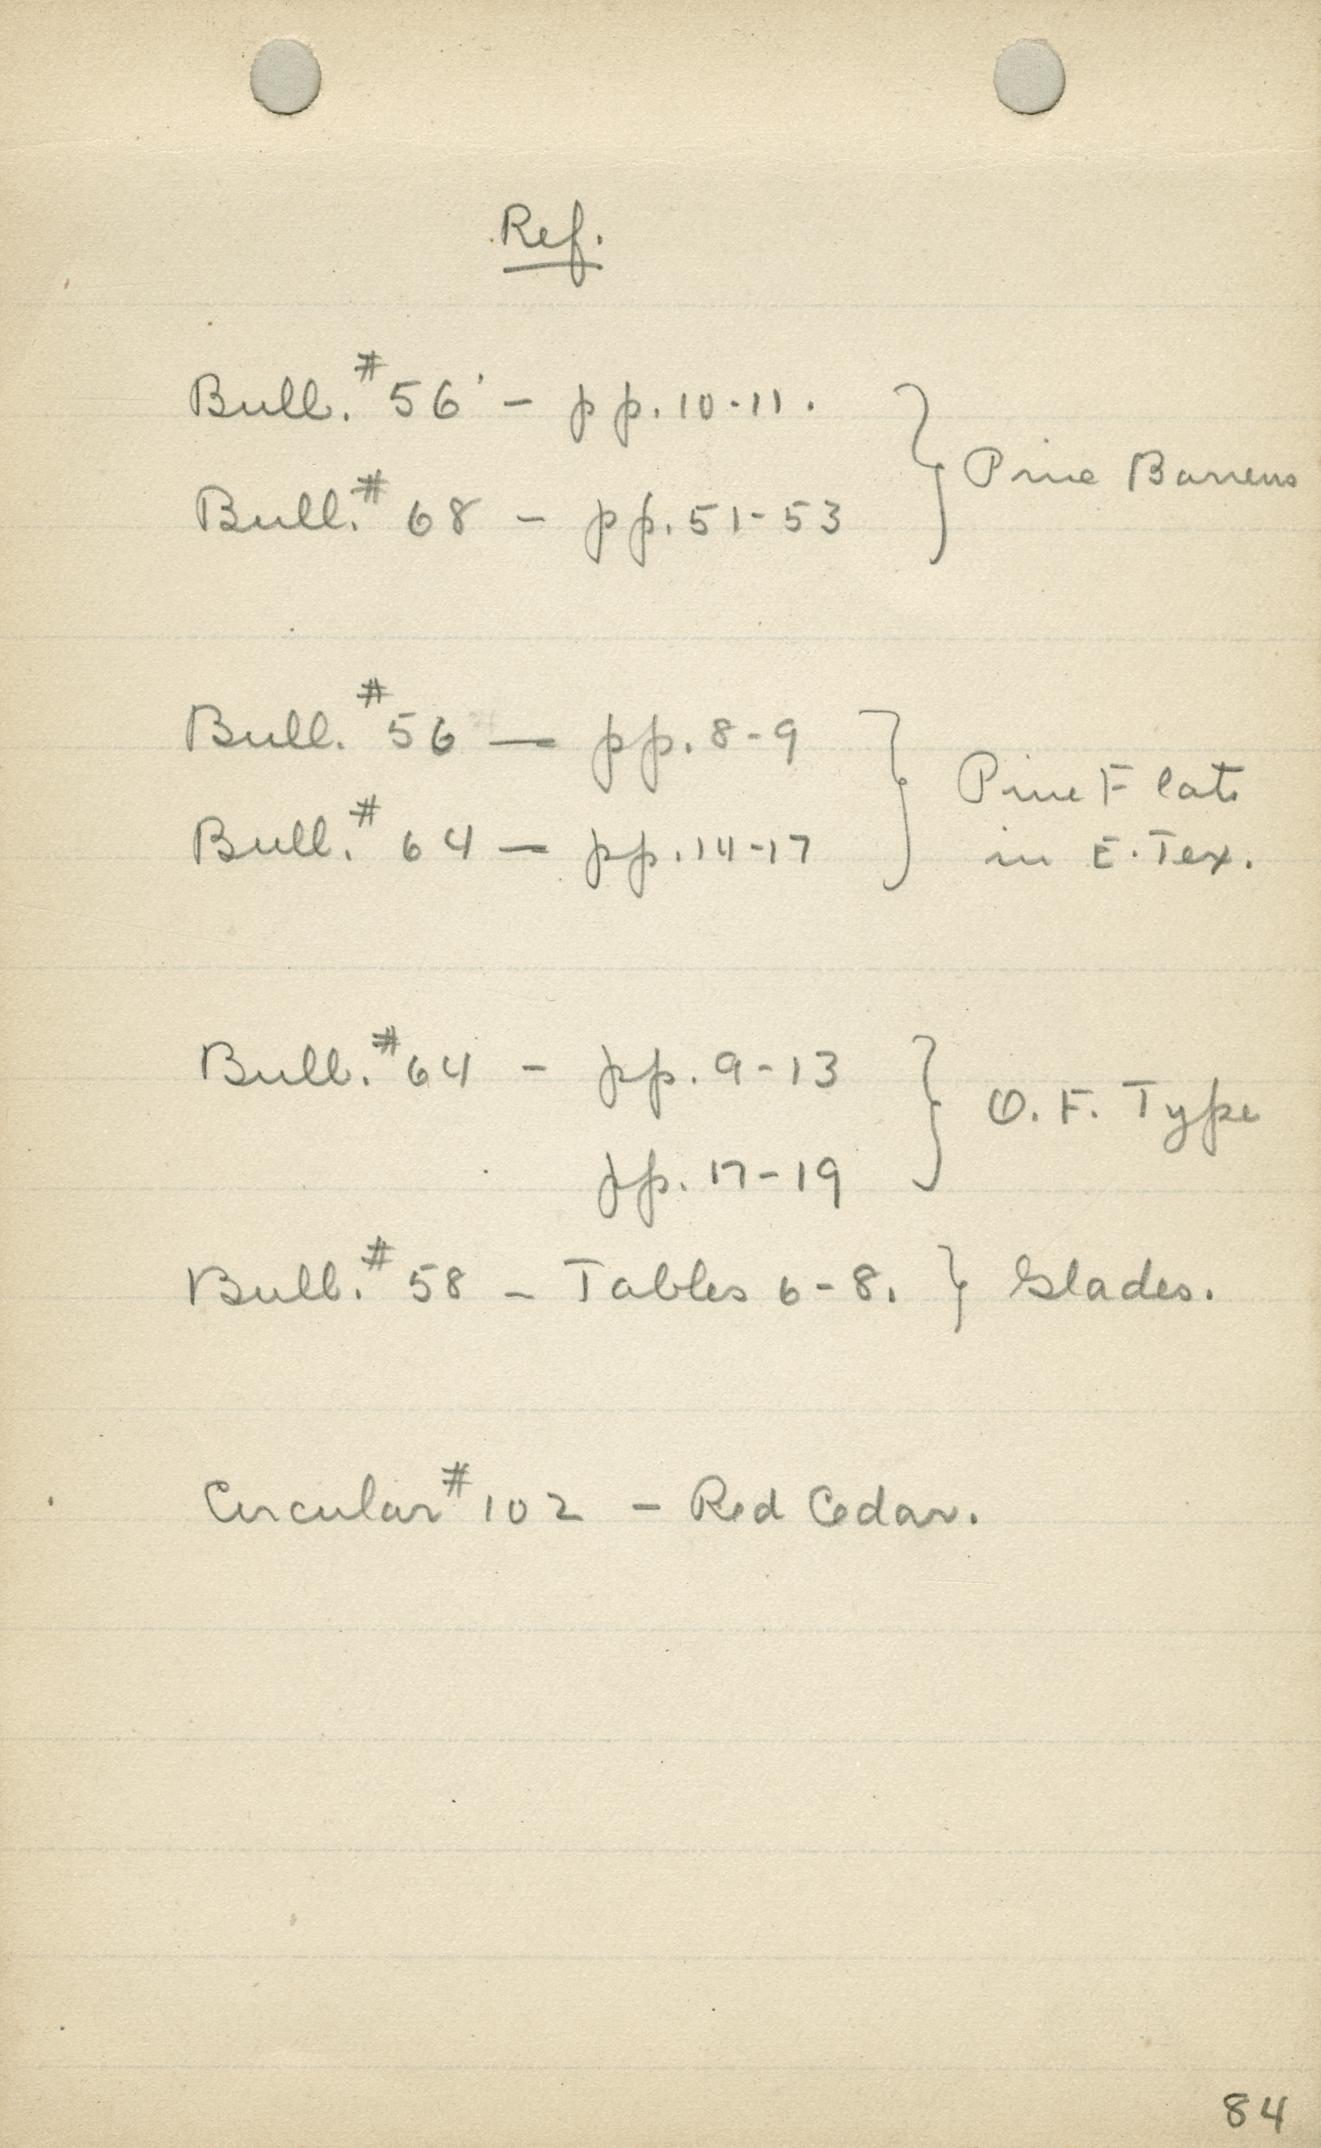 Ref.
Bull. #56 - pp. 10-11. } Pine Barrens
Bull. # 68 - pp. 51-53
Bull. #56 — pp. 8-9 } Pine Flats
Bull. # 64 — pp. 14-17 in E. Tex.
Bull. #64 - pp. 9-13 } O. F. Type
pp. 17-19
Bull. # 58 - Tables 6-8. } Glades.
Circular # 102 - Red Cedar.
84